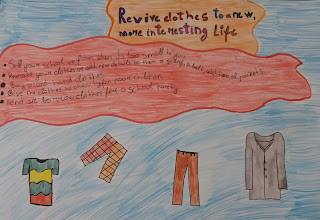 Revive clothes to a new,
more interesting Life
• Sell your school uniform when its too small to you
• Remake your clothes or add new details to them: a scarf, a belt, additional pockets.
• Buy second hand clothes
• Give the clothes to shelter, poor children
• Lend or borrow clothes for a school party